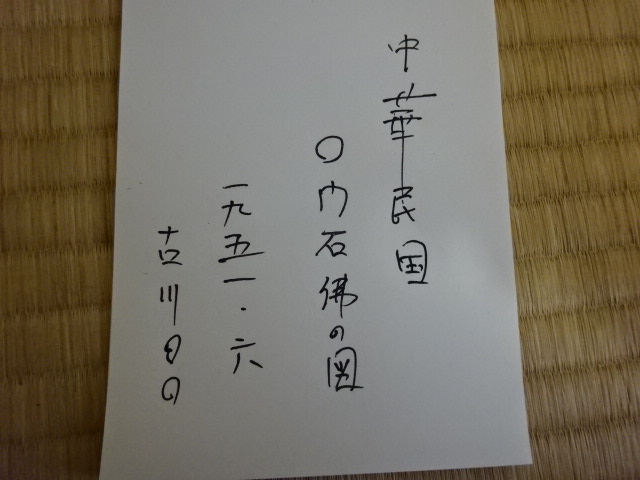 中華民国
〇内石佛の図
一九五一・六
古川日〇